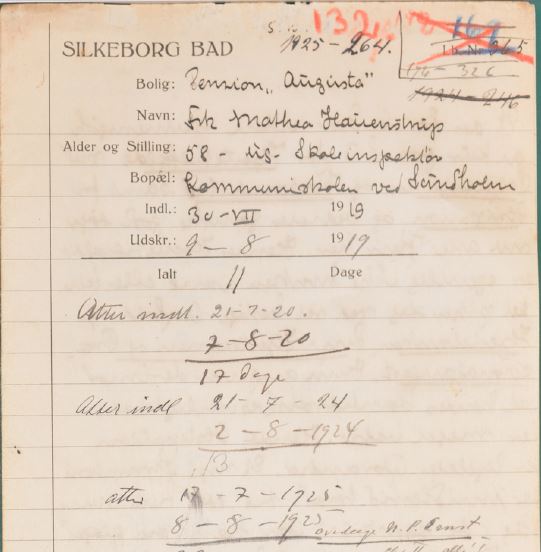 132
169
SILKEBORG BAD
1925 - 264.
Lb. Nr. 265
176 - 326
1924 - 246
Bolig: Pension „Augusta"
Navn: Frk Mathea
Alder og Stilling: 58 - ug. Skoleinspektør
Bopæl: Kommuneskolen ved Sundholm
Indl.: 30 - VII 1919
Udskr.: 9 - 8 1919
Ialt 11 Dage
Atter indl. 21 - 7 - 20.
7 - 8 - 20
17 dage
Atter indl 21 - 7 - 24
2 - 8 - 1924
13
atter 17 - 7 - 1925
8 - 8 - 1925 N. P. Ernst